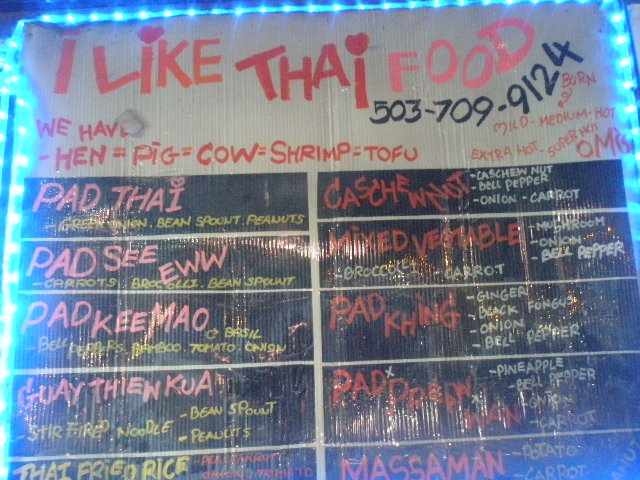 I LIKE THAI FOOD
503-709-9124
BURN
MILD - MEDIUM - HOT
EXTRA HOT - SUPER HOT
OMG
WE HAVE
- HEN = PIG = COW = SHRIMP = TOFU
PAD THAI
- GREEN ONION. BEAN SPOUNT. PEANUTS
PAD SEE EWW
- CARROTS BROCELLI. BEAN SPOUNT
PAD KEE MAO
BASIL
BELL PEPPERS. BAMBOO. TOMATO ONION
GUAY THIEW KUA
- BEAN SPOUNT
- STIR FIRED NOODLE
- PEANUTS
THAI FRIED RICE
CASCHEWNUT
- CASCHEW NUT
- BELL PEPPER
- ONION - CARROT
MIXED VEGTABLE
- MUSHROOM
- ONION
- BELL PEPPER
- BROCCOLI
CARROT
PAD KHING
- GINGER
- BLACK FONGUS
- ONION
- BELL PEPPER
PAD
WAN
- PINEAPPLE
- BELL PEPPER
ONION
- CARROT
MASSAMAN
- POTATO
- CARROT